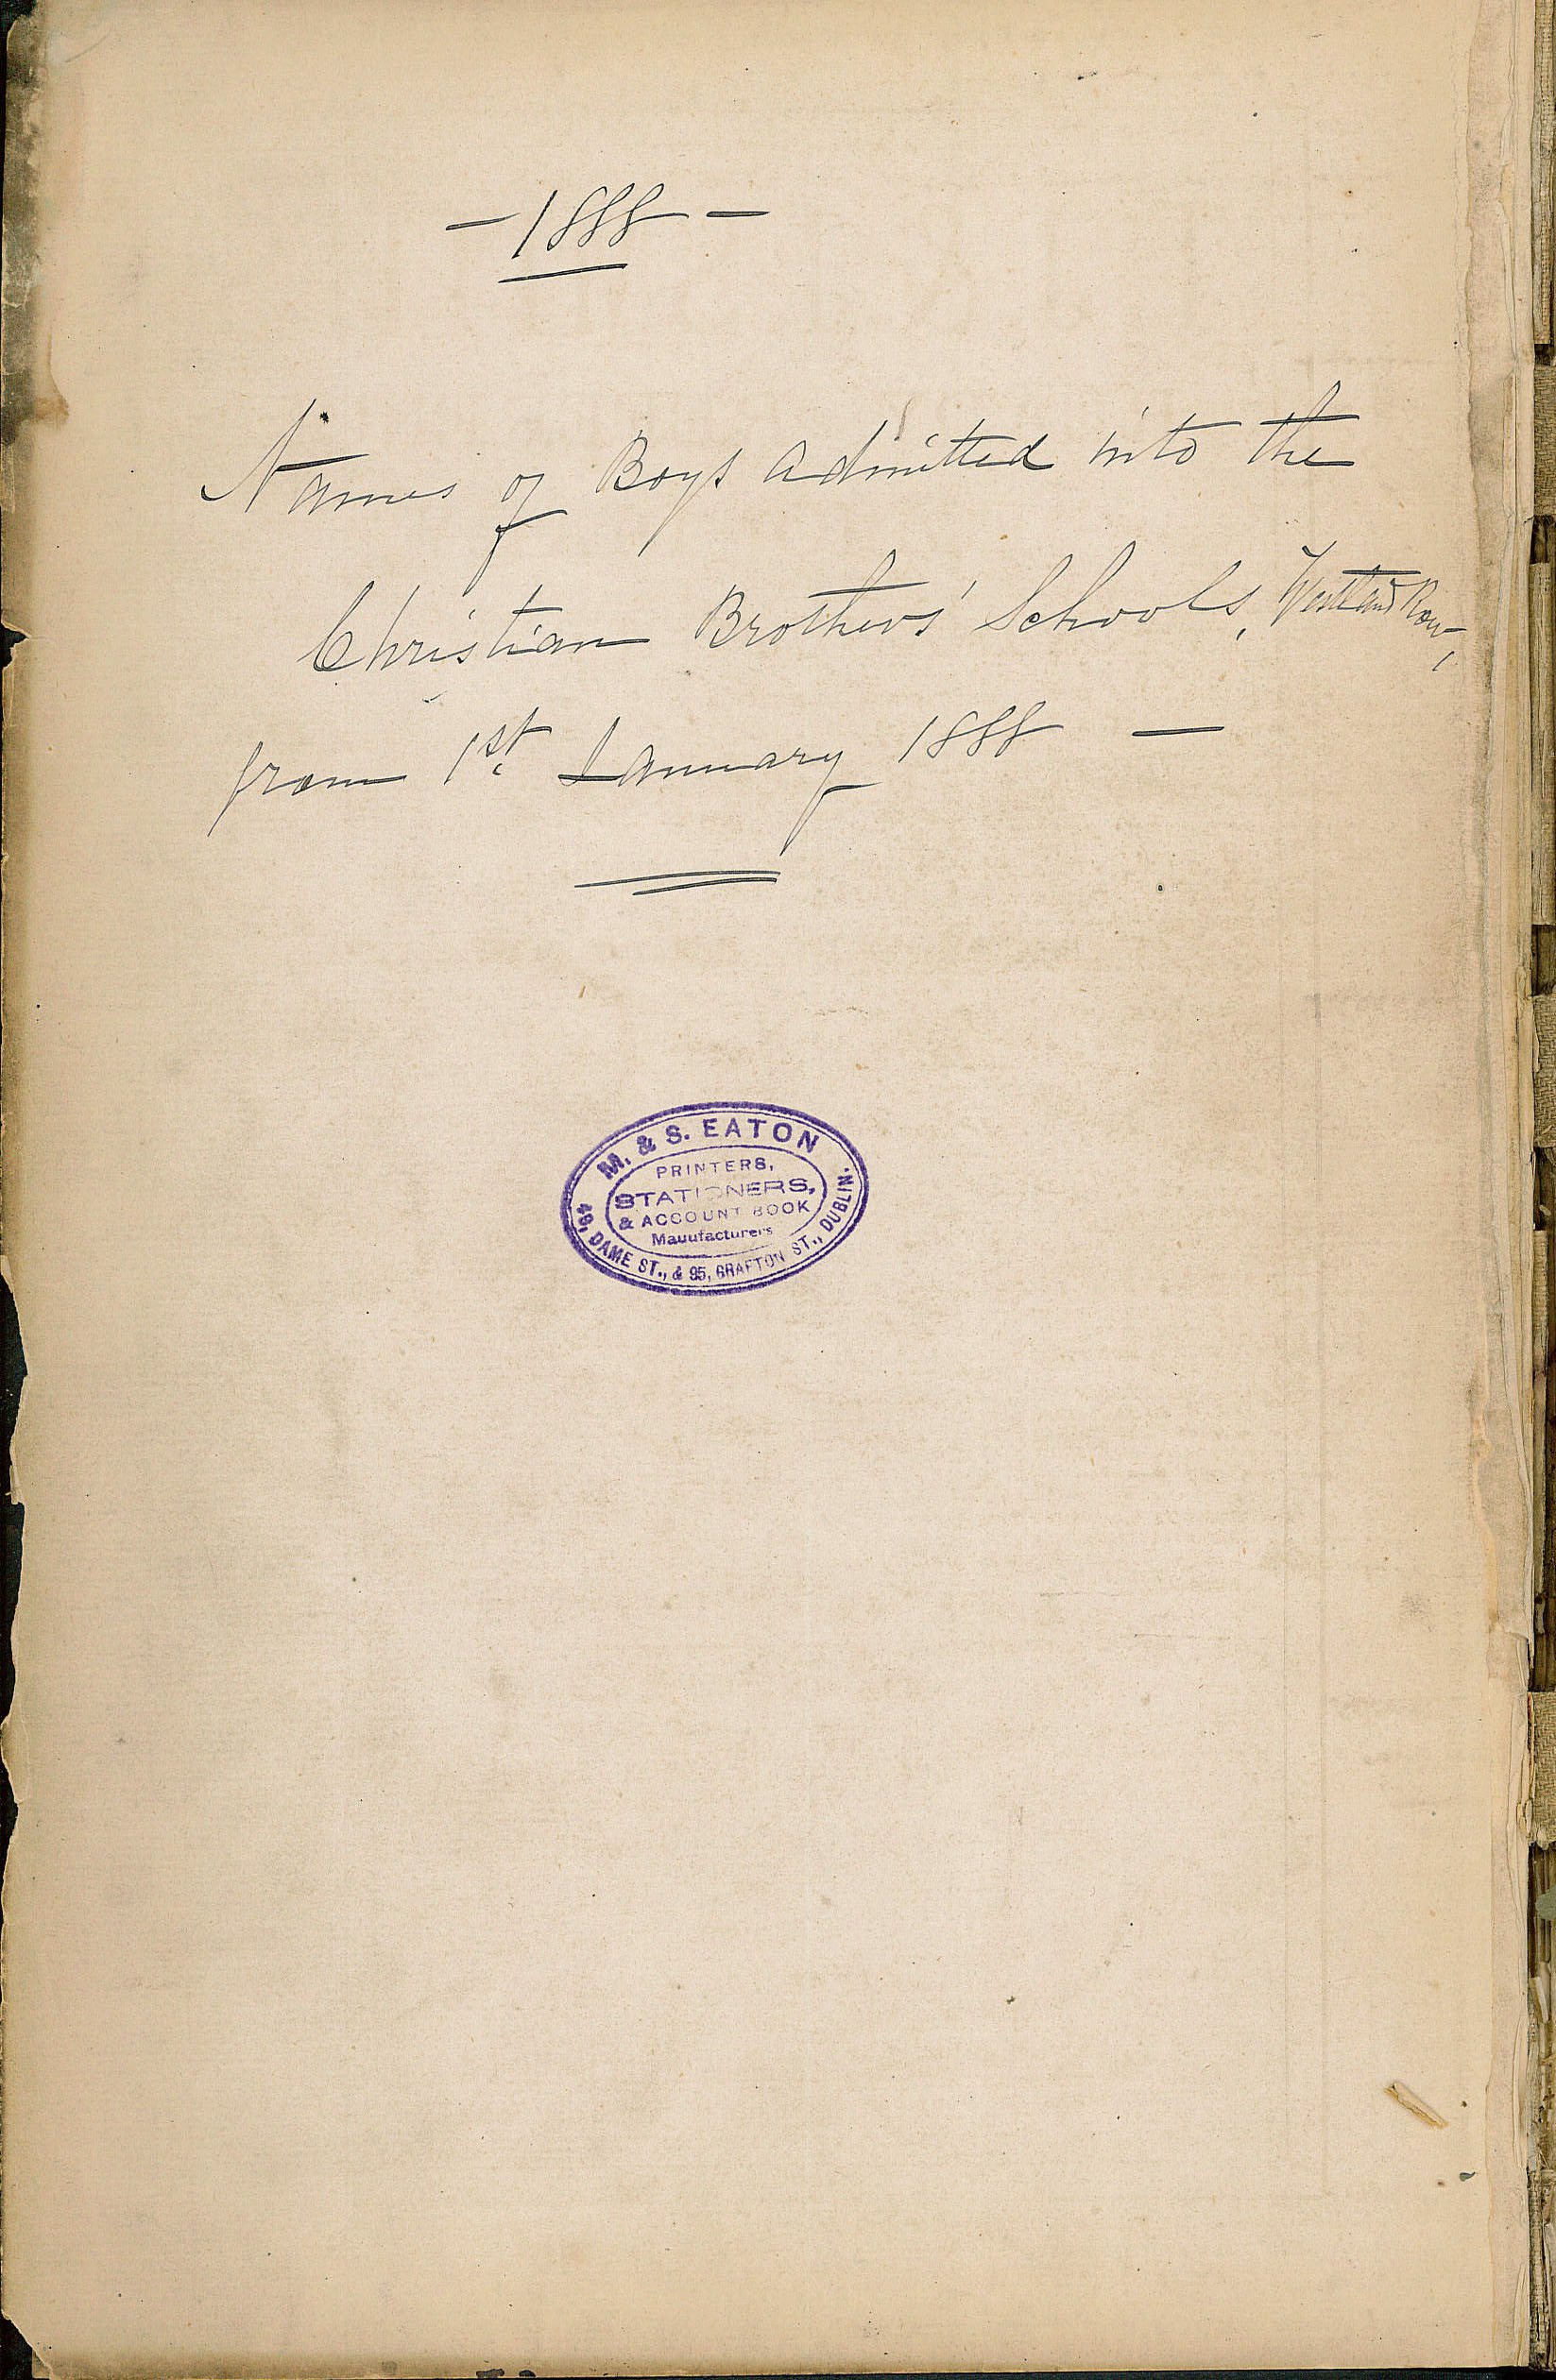 – 1888 –
Names of Boys admitted into the
Christian Brothers' Schools, Westland Row,
from 1st January 1888 –
M. & S. EATON
PRINTERS,
STATIONERS,
& ACCOUNT BOOK
Manufacturers
49, DAME ST., & 95, GRAFTON ST., DUBLIN.